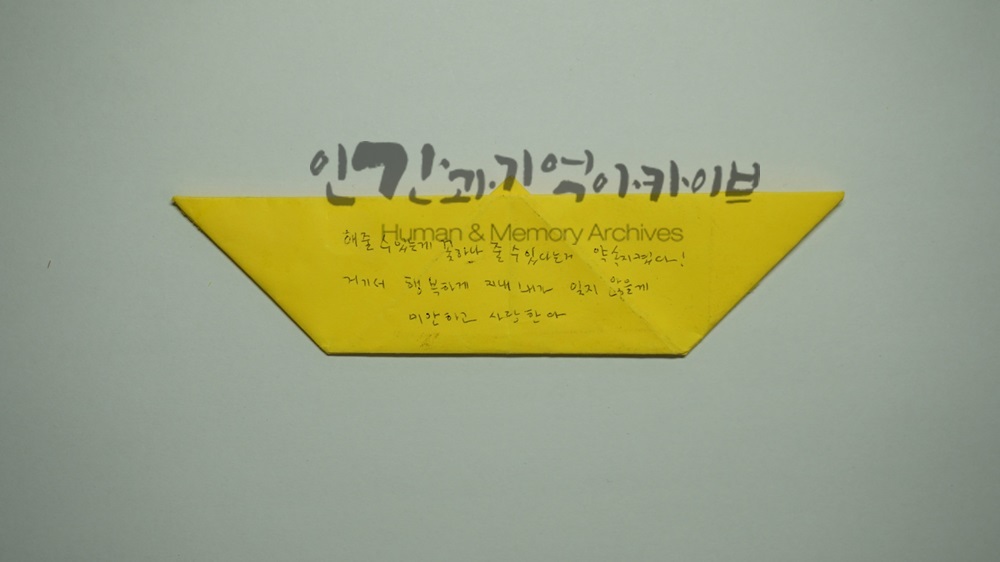 인간과기억아카이브
Human & Memory Archives
해줄 수있는게 꼴하나 줄 수있다는거 약속지켰다!
거기서 행복하게 지내 내가 잊지 않을게
미안하고 사랑한아